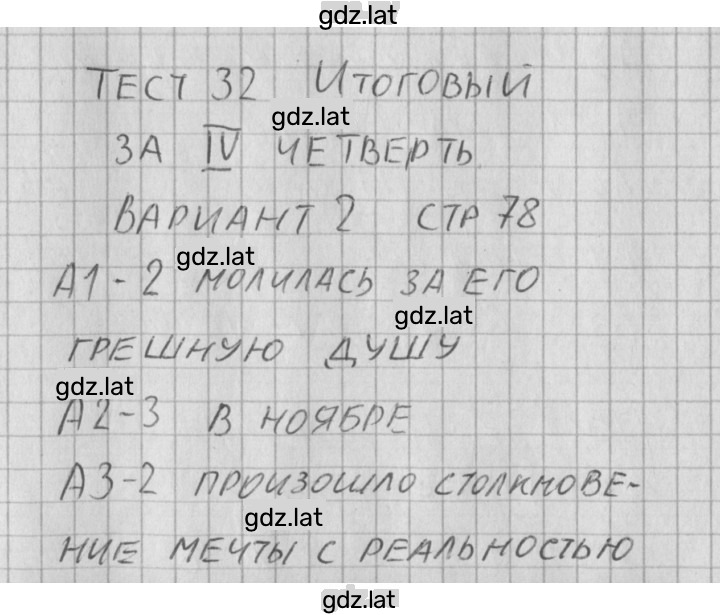 gdz.lat
ТЕСТ 32 ИТОГОВЫЙ
gdz.lat
ЗА IV ЧЕТВЕРТЬ
ВАРИАНТ 2 СТР 78
gdz.lat
А1-2 МОЛИЛАСЬ ЗА ЕГО
gdz.lat
ГРЕШНУЮ ДУШУ
gdz.lat
А2-3 В НОЯБРЕ
А3-2 ПРОИЗОШЛО СТОЛКНОВЕ-
gdz.lat
НИЕ МЕЧТЫ С РЕАЛЬНОСТЬЮ
gdz.lat